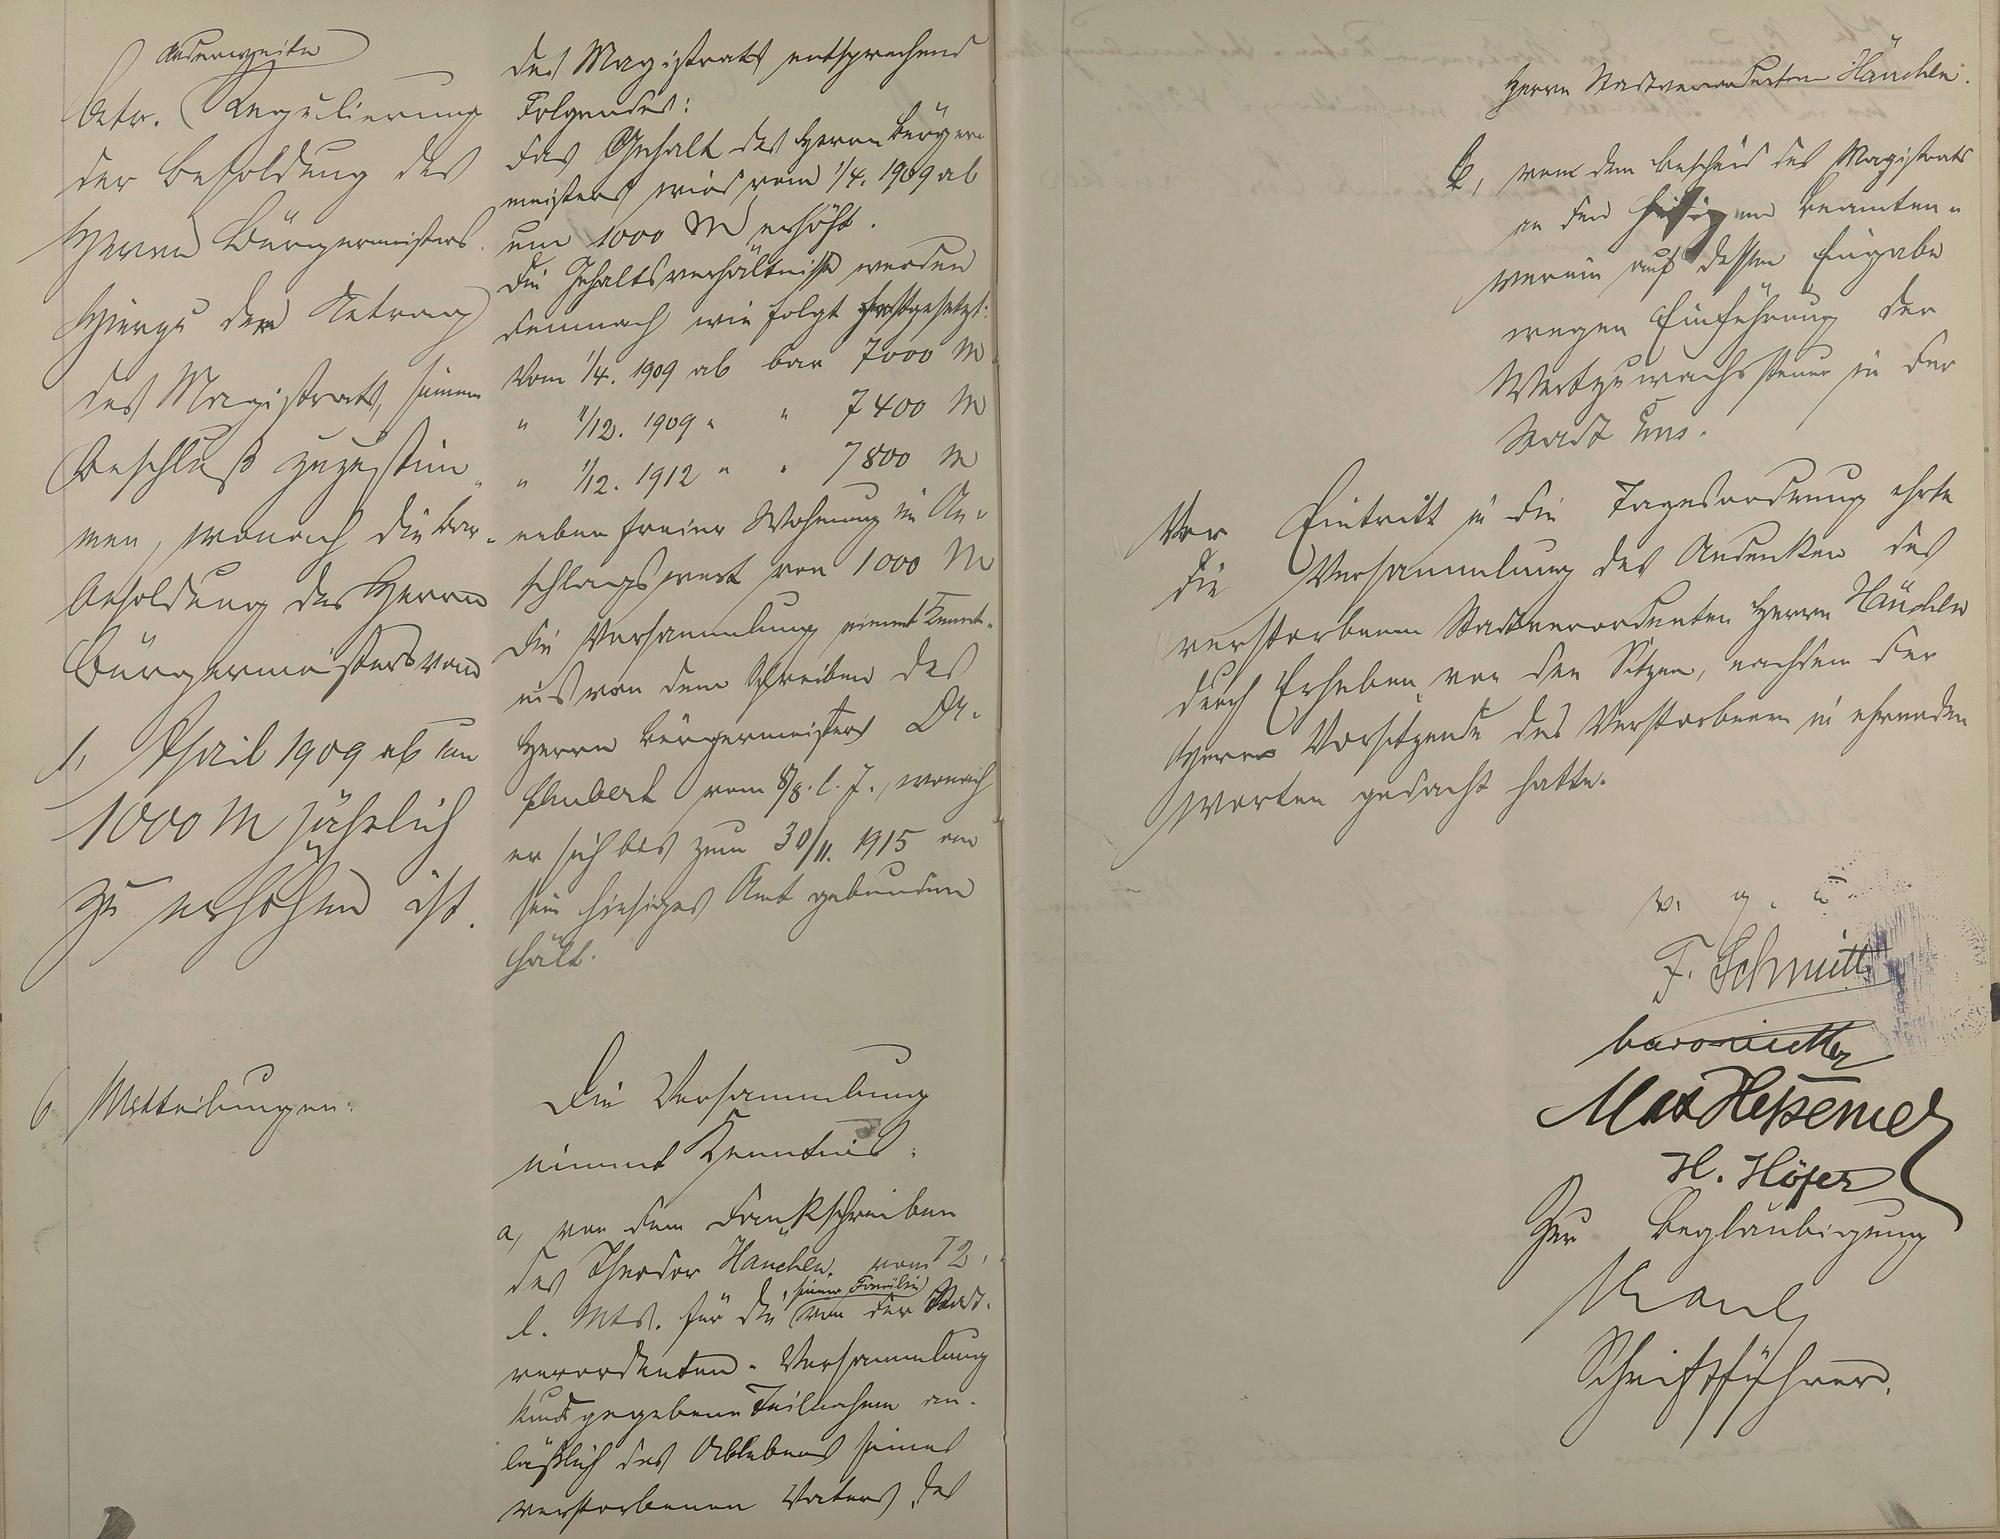 anderweite
betr. Regulierung
der Besoldung des
Herrn Bürgermeisters.
Hierzu der Antrag
des Magistrats, seinem
Beschluß zuzustim-
men, wonach die Bar-
besoldung des Herrn
Bürgermeisters vom
1. April 1909 ab um
1000 M jährlich
zu erhöhen ist.
des Magistrats entsprechend
Folgendes:
Das Gehalt des Herrn Bürger-
meisters wird vom 1/4. 1909 ab
um 1000 M erhöht.
Die Gehaltsverhältnisse werden
demnach wie folgt festgesetzt:
Vom 1/4. 1909 ab bar 7000 M
" 1/12. 1909 " " 7400 M
" 1/12. 1912 " " 7800 M
neben freier Wohnung im An-
schlagswert von 1000 M
Die Versammlung nimmt Kennt-
nis von dem Schreiben des
Herrn Bürgermeisters Dr.
Schubert vom 8/8. l. J., wonach
er sich bis zum 30/11. 1915 an
sein hiesiges Amt gebunden
hält.
6 Mitteilungen:
Die Versammlung
nimmt Kenntnis:
a, von dem Dankschreiben
des Theodor Hänchen vom 12.
l. Mts. für die seiner Familie von der Stadt-
verordneten-Versammlung
kundgegebene Teilnahme an-
läßlich des Ablebens seines
verstorbenen Vaters, des
Herrn Stadtverordneten Hänchen.
b, von dem Bescheid des Magistrats
an den hiesigen Beamten-
verein auf dessen Eingabe
wegen Einführung der
Wertzuwachssteuer in der
Stadt Ems.
Vor Eintritt in die Tagesordnung ehrte
die Versammlung das Andenken des
verstorbenen Stadtverordneten Herrn Hänchen
durch Erheben von den Sitzen, nachdem der
Herr Vorsitzende des Verstorbenen in ehrenden
Worten gedacht hatte.
v. g. u.
F. Schmitt
Max Hessemer
H. Höfer
Zur Beglaubigung
Schriftführer.